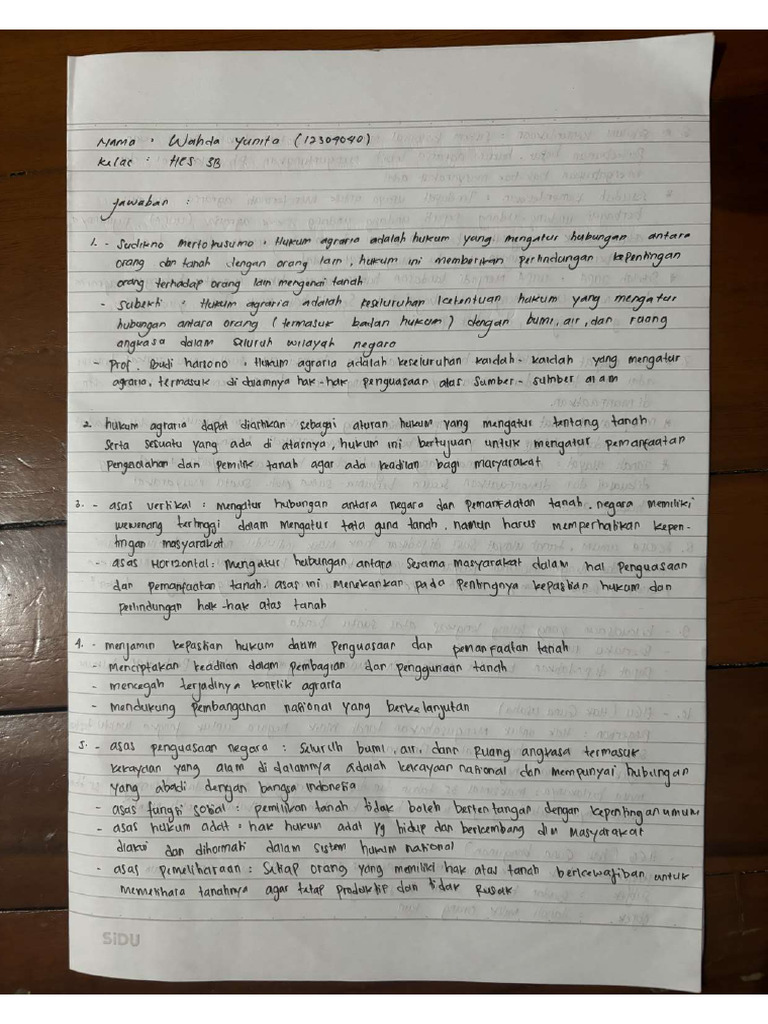 Nama : Wahda Yunita (12304040)
Kelas : HES 3B
Jawaban :
1. - Sudikno mertokusumo : Hukum agraria adalah hukum yang mengatur hubungan antara
orang dan tanah dengan orang lain, hukum ini memberikan perlindungan kepentingan
orang terhadap orang lain mengenai tanah
- Subekti : Hukum agraria adalah keseluruhan ketentuan hukum yang mengatur
hubungan antara orang (termasuk badan hukum) dengan bumi, air, dan ruang
angkasa dalam seluruh wilayah negara
- Prof. Budi harsono : Hukum agraria adalah keseluruhan kaidah-kaidah yang mengatur
agraria, termasuk di dalamnya hak-hak penguasaan atas sumber-sumber alam
2. hukum agraria dapat diartikan sebagai aturan hukum yang mengatur tentang tanah
serta sesuatu yang ada di atasnya, hukum ini bertujuan untuk mengatur pemanfaatan
pengadahan dan pemilik tanah agar ada keadilan bagi masyarakat
3. - asas vertikal : mengatur hubungan antara negara dan pemanfaatan tanah. negara memiliki
wewenang tertinggi dalam mengatur tata guna tanah. namun harus memperhatikan kepen-
tingan masyarakat
- asas Horizontal : mengatur hubungan antara sesama masyarakat dalam hal penguasaan
dan pemanfaatan tanah. asas ini menekankan pada pentingnya kepastian hukum dan
perlindungan hak-hak atas tanah
4. - menjamin kepastian hukum dalam penguasaan dan pemanfaatan tanah
- menciptakan keadilan dalam pembagian dan penggunaan tanah
- mencegah terjadinya konflik agraria
- mendukung pembangunan nasional yang berkelanjutan
5. - asas penguasaan negara : seluruh bumi, air, dann ruang angkasa termasuk
kekayaan yang alam di dalamnya adalah kekayaan nasional dan mempunyai hubungan
yang abadi dengan bangsa Indonesia
- asas fungsi sosial : pemilikan tanah tidak boleh bertentangan dengan kepentingan umum
- asas hukum adat : hak hukum adat yg hidup dan berkembang dlm masyarakat
diakui dan dihormati dalam sistem hukum nasional
- asas pemeliharaan : Setiap orang yang memiliki hak atas tanah berkewajiban untuk
memelihara tanahnya agar tetap produktip dan tidak rusak
SiDU